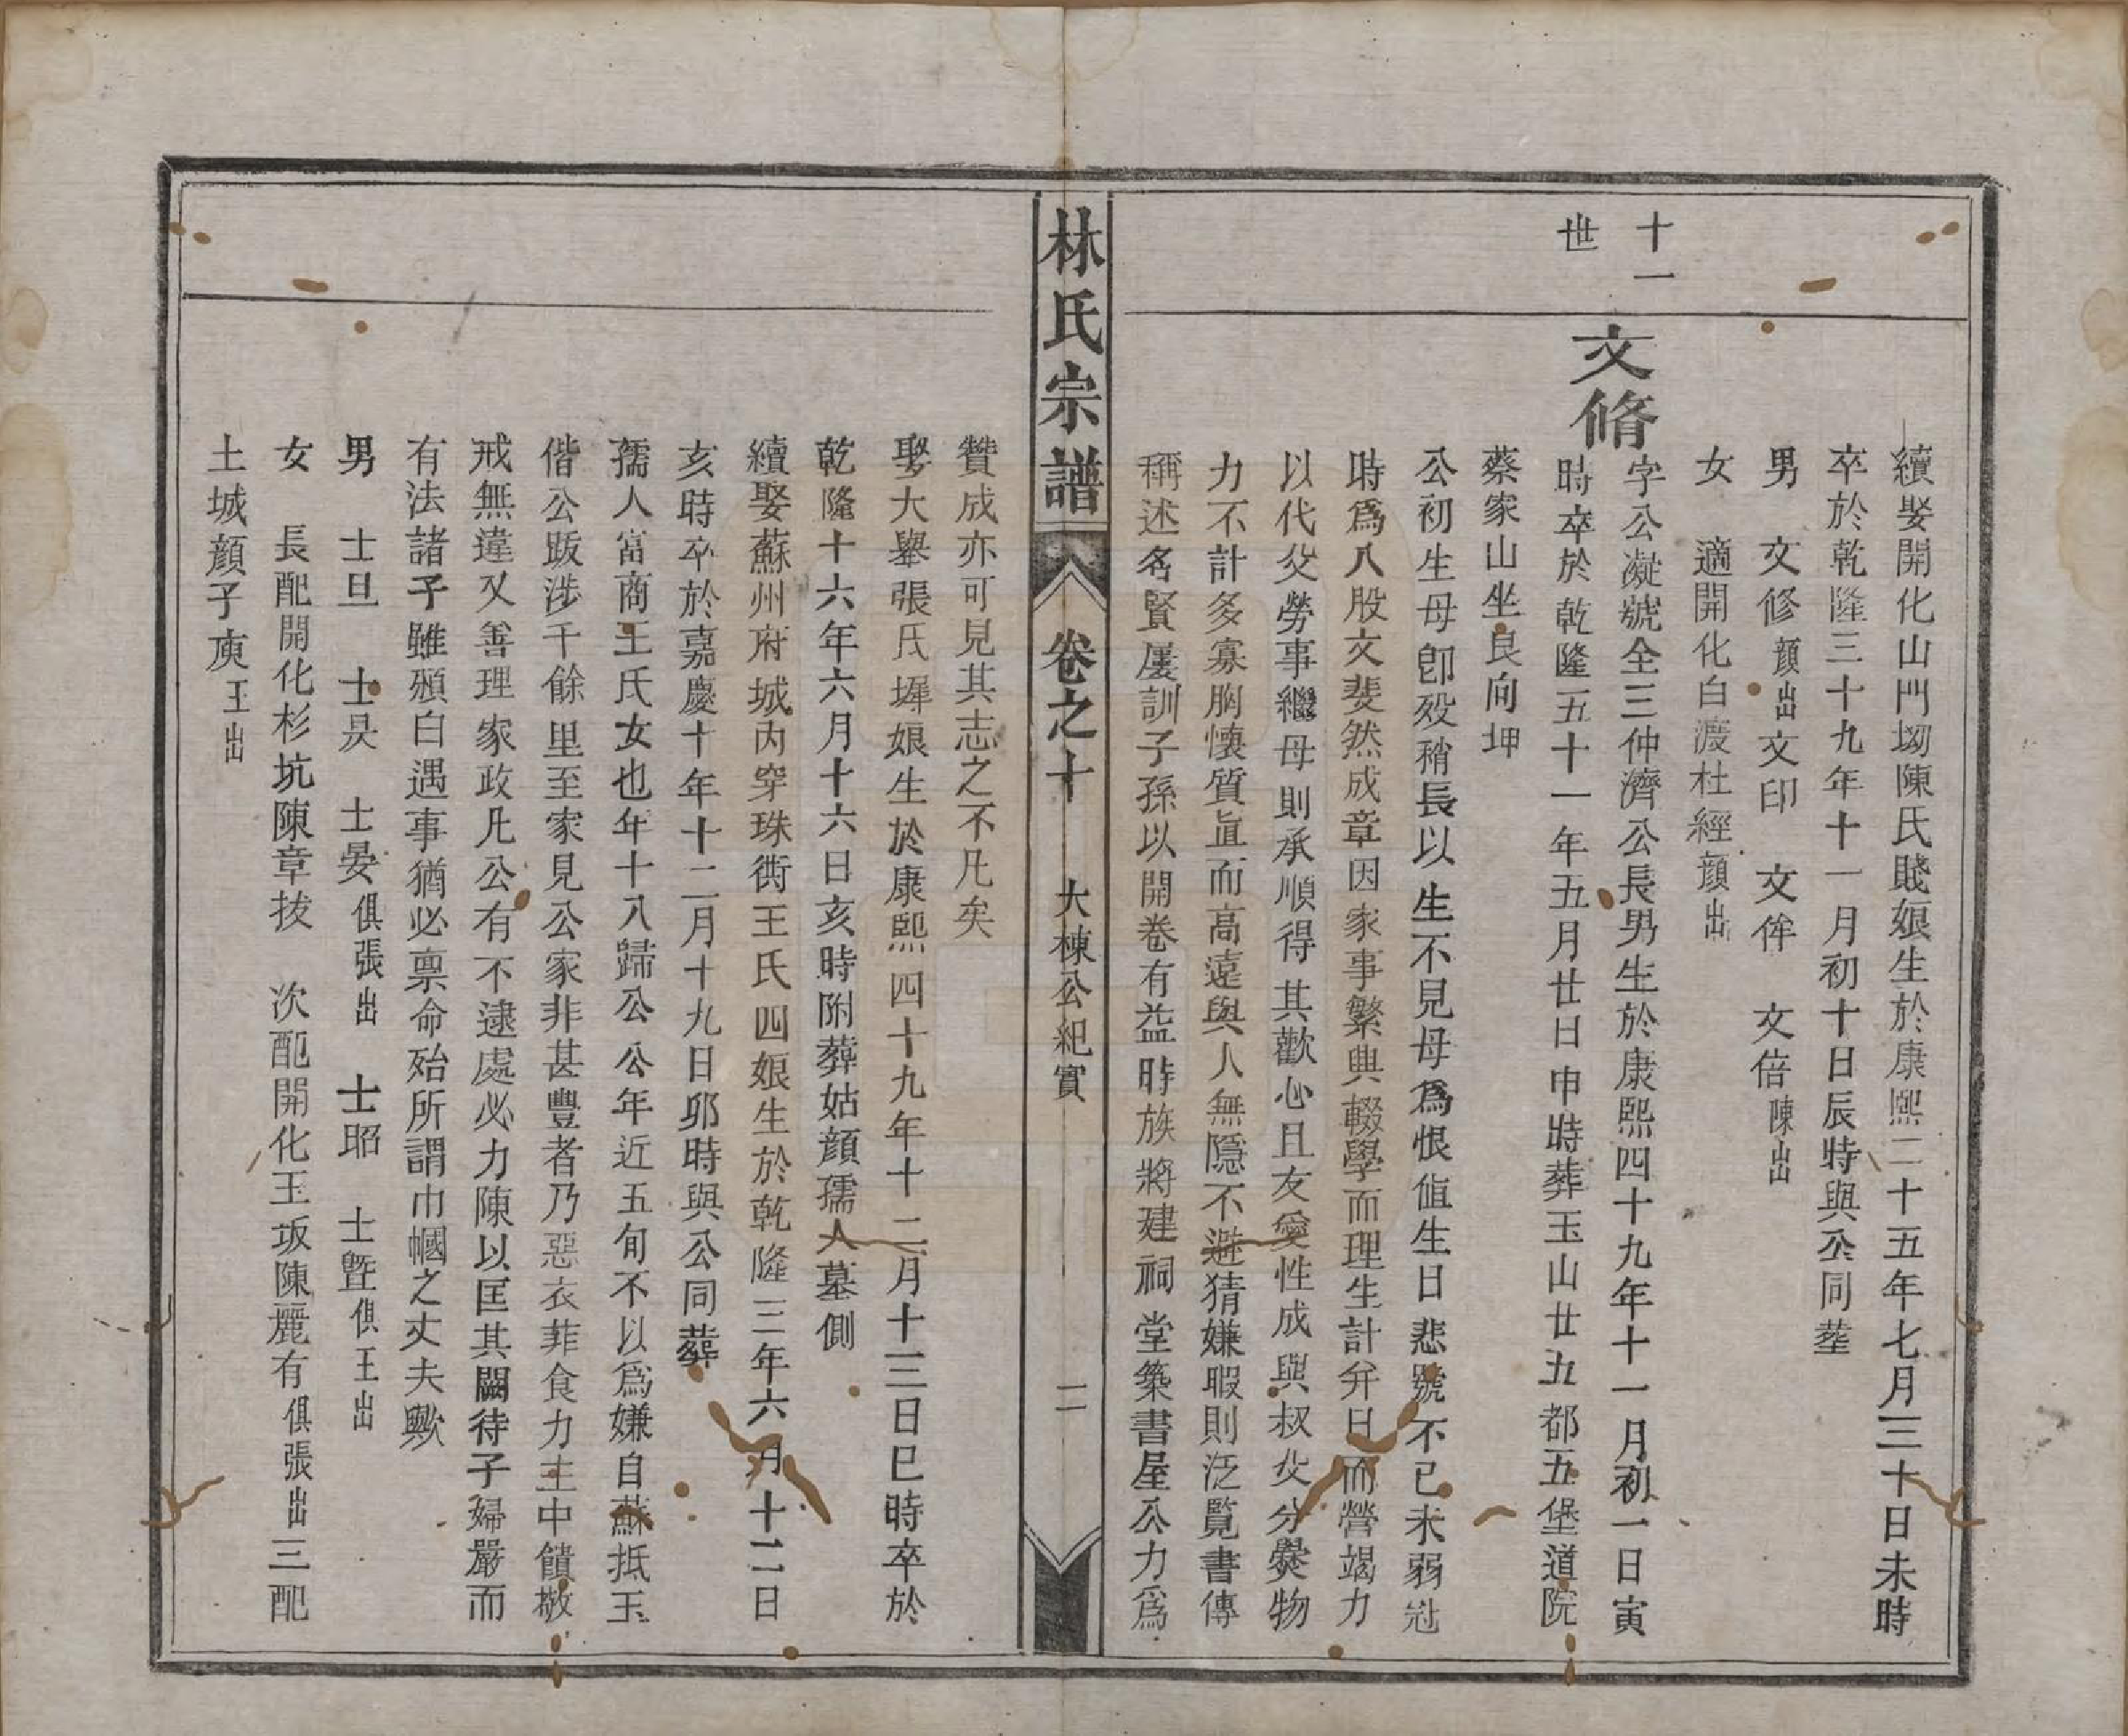 續娶開化山門塢陳氏賤娘生於康熙二十五年七月三十日未時
卒於乾隆三十九年十一月初十日辰時與公同塟
男　文修顔出文印　文侔　文倍陳出
女　適開化白渡杜經顔出
十一世
文脩
字公凝號全三仲濟公長男生於康熙四十九年十一月初一日寅
時卒於乾隆五十一年五月廿日申時葬玉山廿九都五堡道院
蔡家山坐艮向坤
公初生母卽歿稍長以生不見母爲恨値生日悲號不已未弱冠
時爲八股文斐然成章因家事繁興輟學而理生計弁日而營竭力
以代父勞事繼母則承順得其歡心且友愛性成與叔父分爨物
力不計多寡胸懷質直而高遠與人無隱不避猜嫌暇則泛覽書傳
稱述名賢屢訓子孫以開卷有益時族將建祠堂築書屋公力爲
林氏宗譜　卷之十　大棟公紀實　二
贊成亦可見其志之不凡矣
娶大舉張氏墀娘生於康熙四十九年十二月十三日巳時卒於
乾隆十六年六月十六日亥時附葬姑顔孺人墓側
續娶蘇州府城內穿珠衖王氏四娘生於乾隆三年六月十二日
亥時卒於嘉慶十年十二月十九日卯時與公同葬
孺人富商王氏女也年十八歸公公年近五旬不以爲嫌自蘇抵玉
偕公跋涉千餘里至家見公家非甚豐者乃惡衣菲食力主中饋敬
戒無違又善理家政凡公有不逮處必力陳以匡其闕待子婦嚴而
有法諸子雖頒白遇事猶必禀命殆所謂巾幗之丈夫歟
男　士旦　士昃　士晏俱張出　士昭　士曁俱王出
女　長配開化杉坑陳章拔　次配開化玉坂陳麗有俱張出三配
土城顔子庾王出